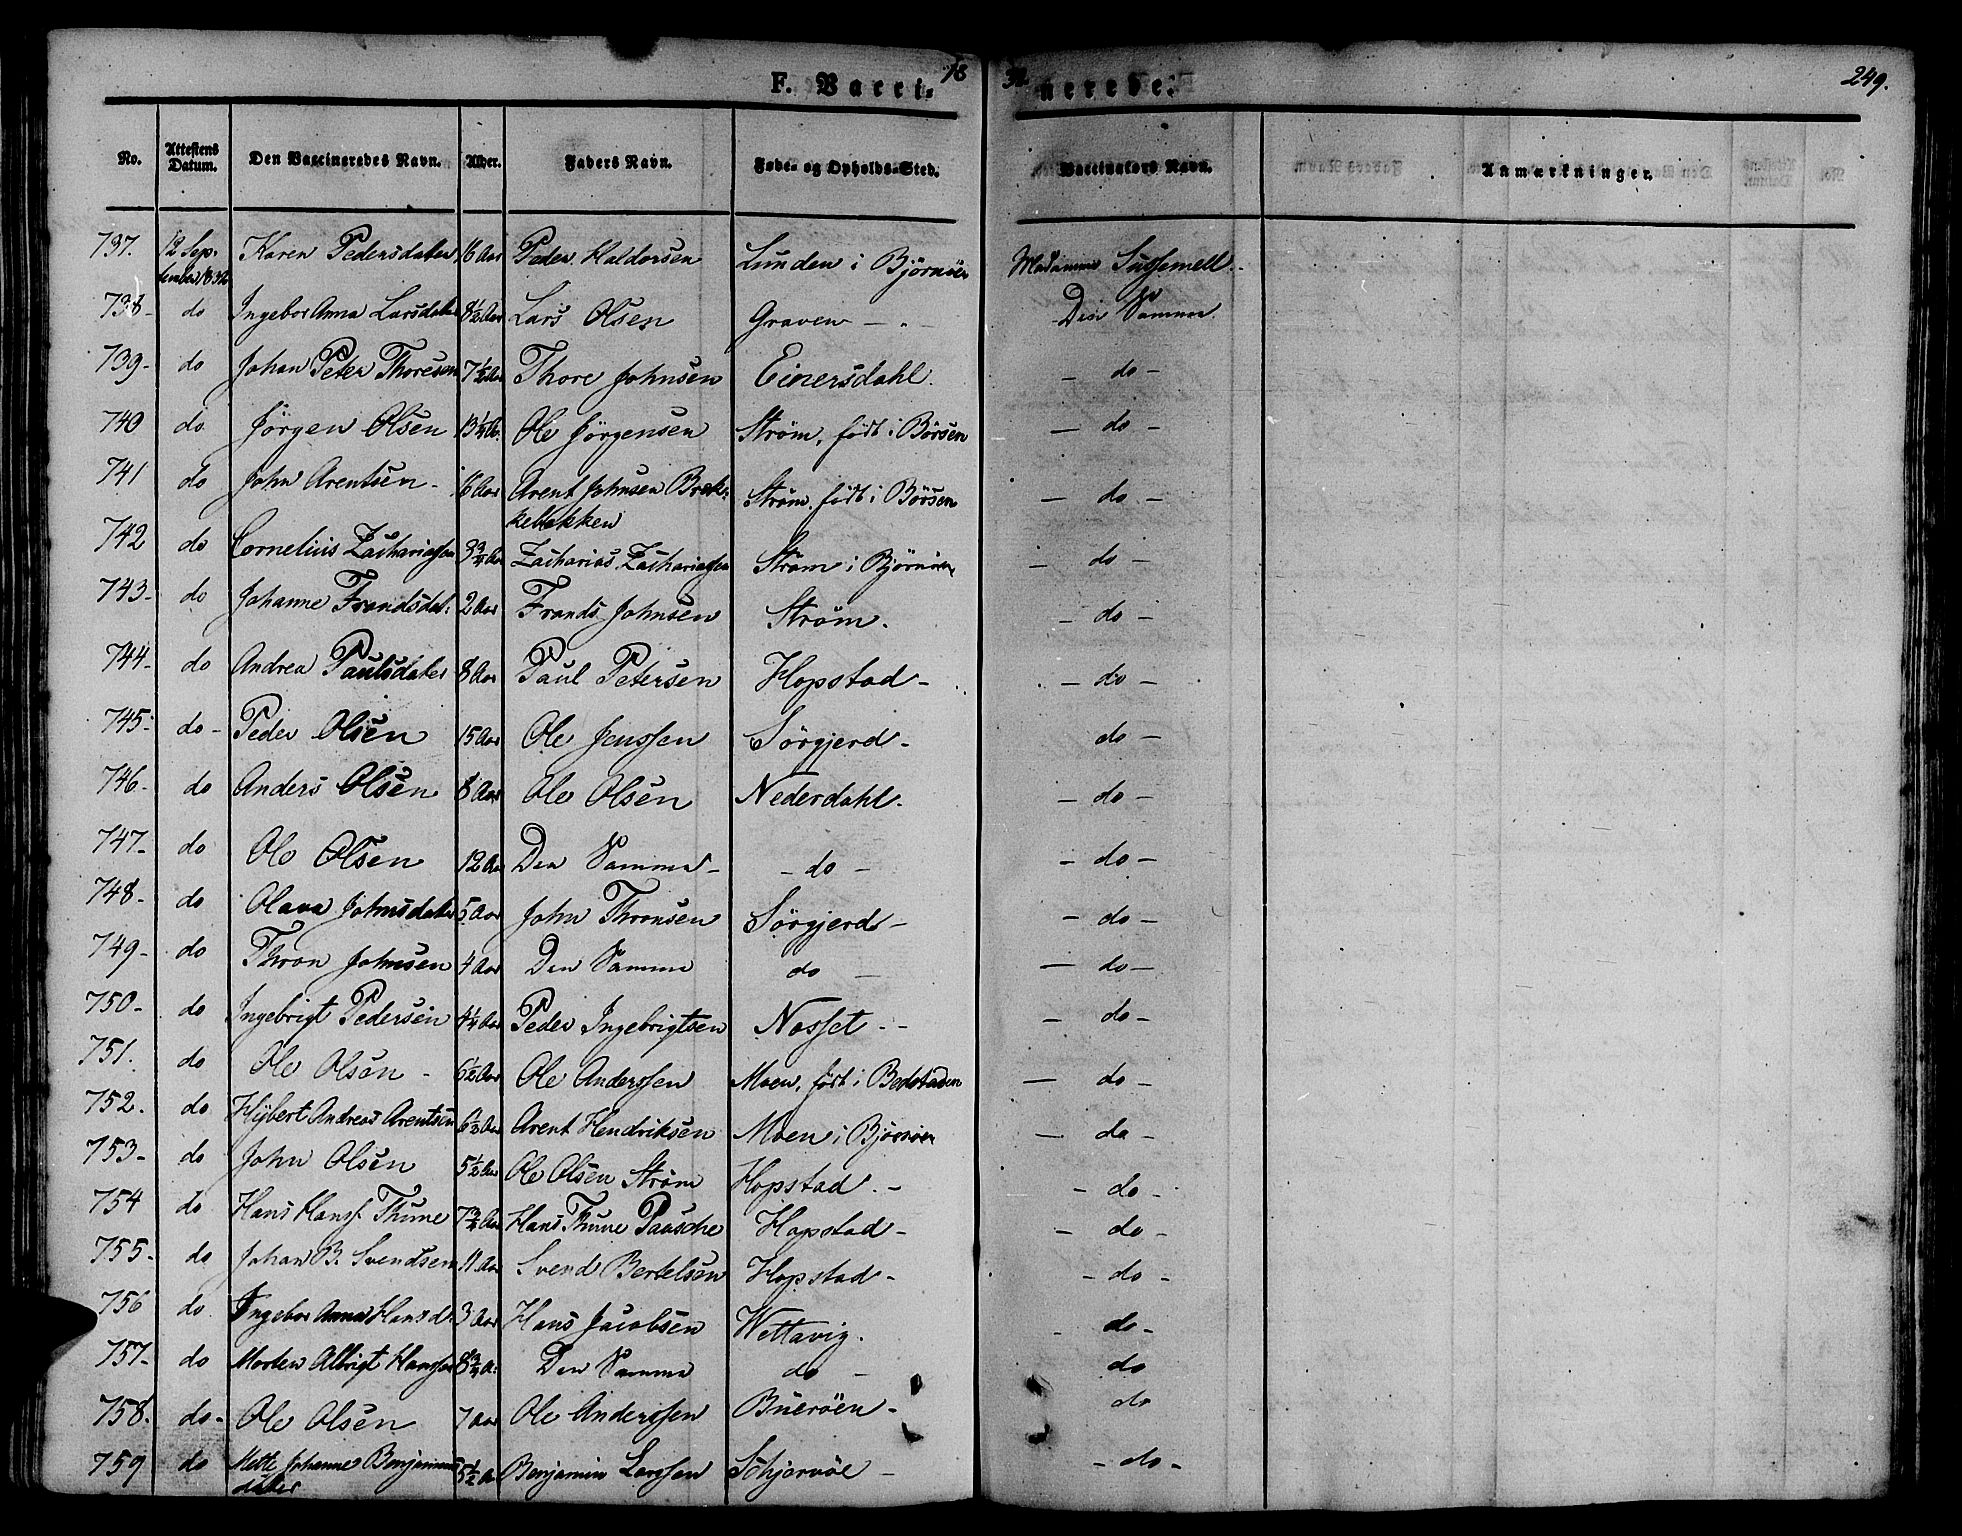 F. Vacci- 18 32 nerede. 249.
No. Attestens Datum. Den Vaccineredes Navn. Alder. Faders Navn. Føde- og Opholds-Sted. Vaccinators Navn. Anmærkninger.
737. 12 Sep- Karen Pedersdater 16 Aar Peder Haldorsen Lunden i Bjørnöer Madamme Sussemell.
tember 1832
738- do Ingebor Anna Larsdater 8½ Aar Lars Olsen Graven - " - Den Samme.
739- do Johan Peter Thoresen 7½ Aar Thore Johnsen Einersdahl. - do -
740 do Jörgen Olsen 13¼ A. Ole Jörgensen Strøm, født i Børsen - do -
741 do John Arentsen - 16 Aar Arent Johnsen Brek- Strøm, født i Børsen - do -
kebakken
742 do Cornelius Zachariassen 3¾ Aar Zacharias Zachariassen Strøm i Bjørnöer - do -
743- do Johanne Frandsdat: 2 Aar Frands Johnsen Strøm. - do -
744- do Andrea Paulsdater 8 Aar Paul Petersen Hopstad - - do -
745- do - Peder Olsen 15 Aar Ole Jenssen Sörgjerd - do -
746- do Anders Olsen 8 Aar Ole Olsen Nederdahl. - do -
747- do Ole Olsen 12 Aar Den Samme - - do - - do -
748- do Olava Johnsdater 5 Aar John Thronsen Sörgjerd - - do -
749- do Thron Johnsen 4 Aar Den Samme do - - do -
750- do Ingebrigt Pedersen 4¼ Aar Peder Ingebrigtsen Nosset - - - do -
751. do Ole Olsen - 6½ Aar Ole Anderssen Moen, født i Bedstaden - do -
752. do Hybert Andreas Arentsen 6½ Aar Arent Hendriksen Moen i Bjørnöer - do -
753- do John Olsen 5½ Aar Ole Olsen Strøm Hopstad. - - do -
754 do Hans Hansf. Thune 7¾ Aar Hans Thune Paasche Hopstad - - do -
755- do Johan B. Svendsen 11 Aar Svend Bertelsen Hopstad - - do -
756 do Ingebor Anna Hansd: 3 Aar Hans Jacobsen Wettavig. - do -
757- do Morten Albrigt Hanssen 8¾ A: Den Samme do - do
758. do - Ole Olsen 7 Aar Ole Anderssen Buerøen - do
759 do Mette Johanne Benjamins 5½ A. Benjamin Larssen Schjervöe - - do -
dater